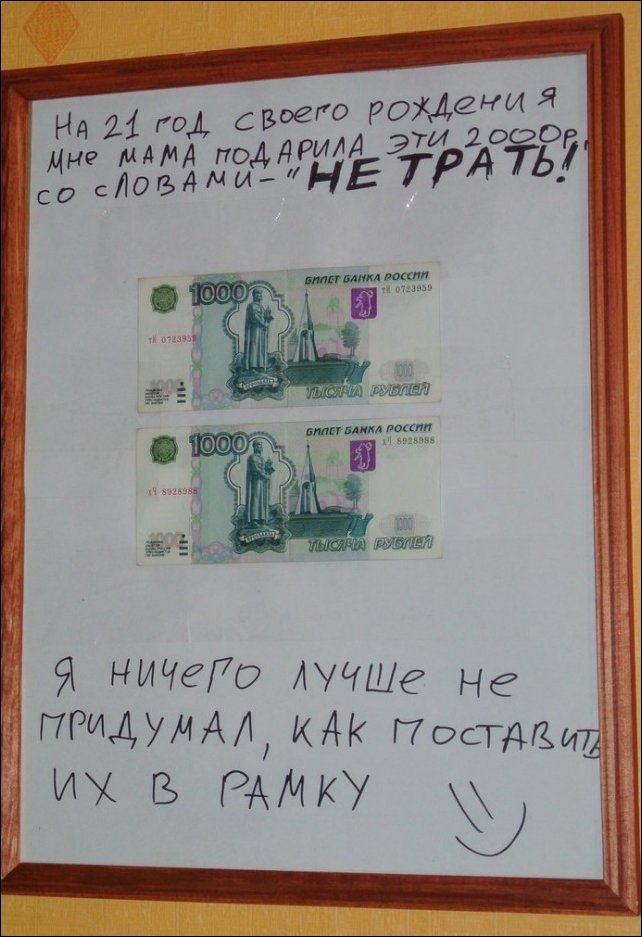 На 21 год своего рождения
мне мама подарила эти 2000р.
со словами – "НЕ ТРАТЬ!
БИЛЕТ БАНКА РОССИИ
1000
тН 0723959
тН 0723959
1000
1000
ЯРОСЛАВЛЬ
ТЫСЯЧА РУБЛЕЙ
БИЛЕТ БАНКА РОССИИ
1000
хЧ 8928988
хЧ 8928988
1000
1000
ЯРОСЛАВЛЬ
ТЫСЯЧА РУБЛЕЙ
Я ничего лучше не
придумал, как поставить
их в рамку